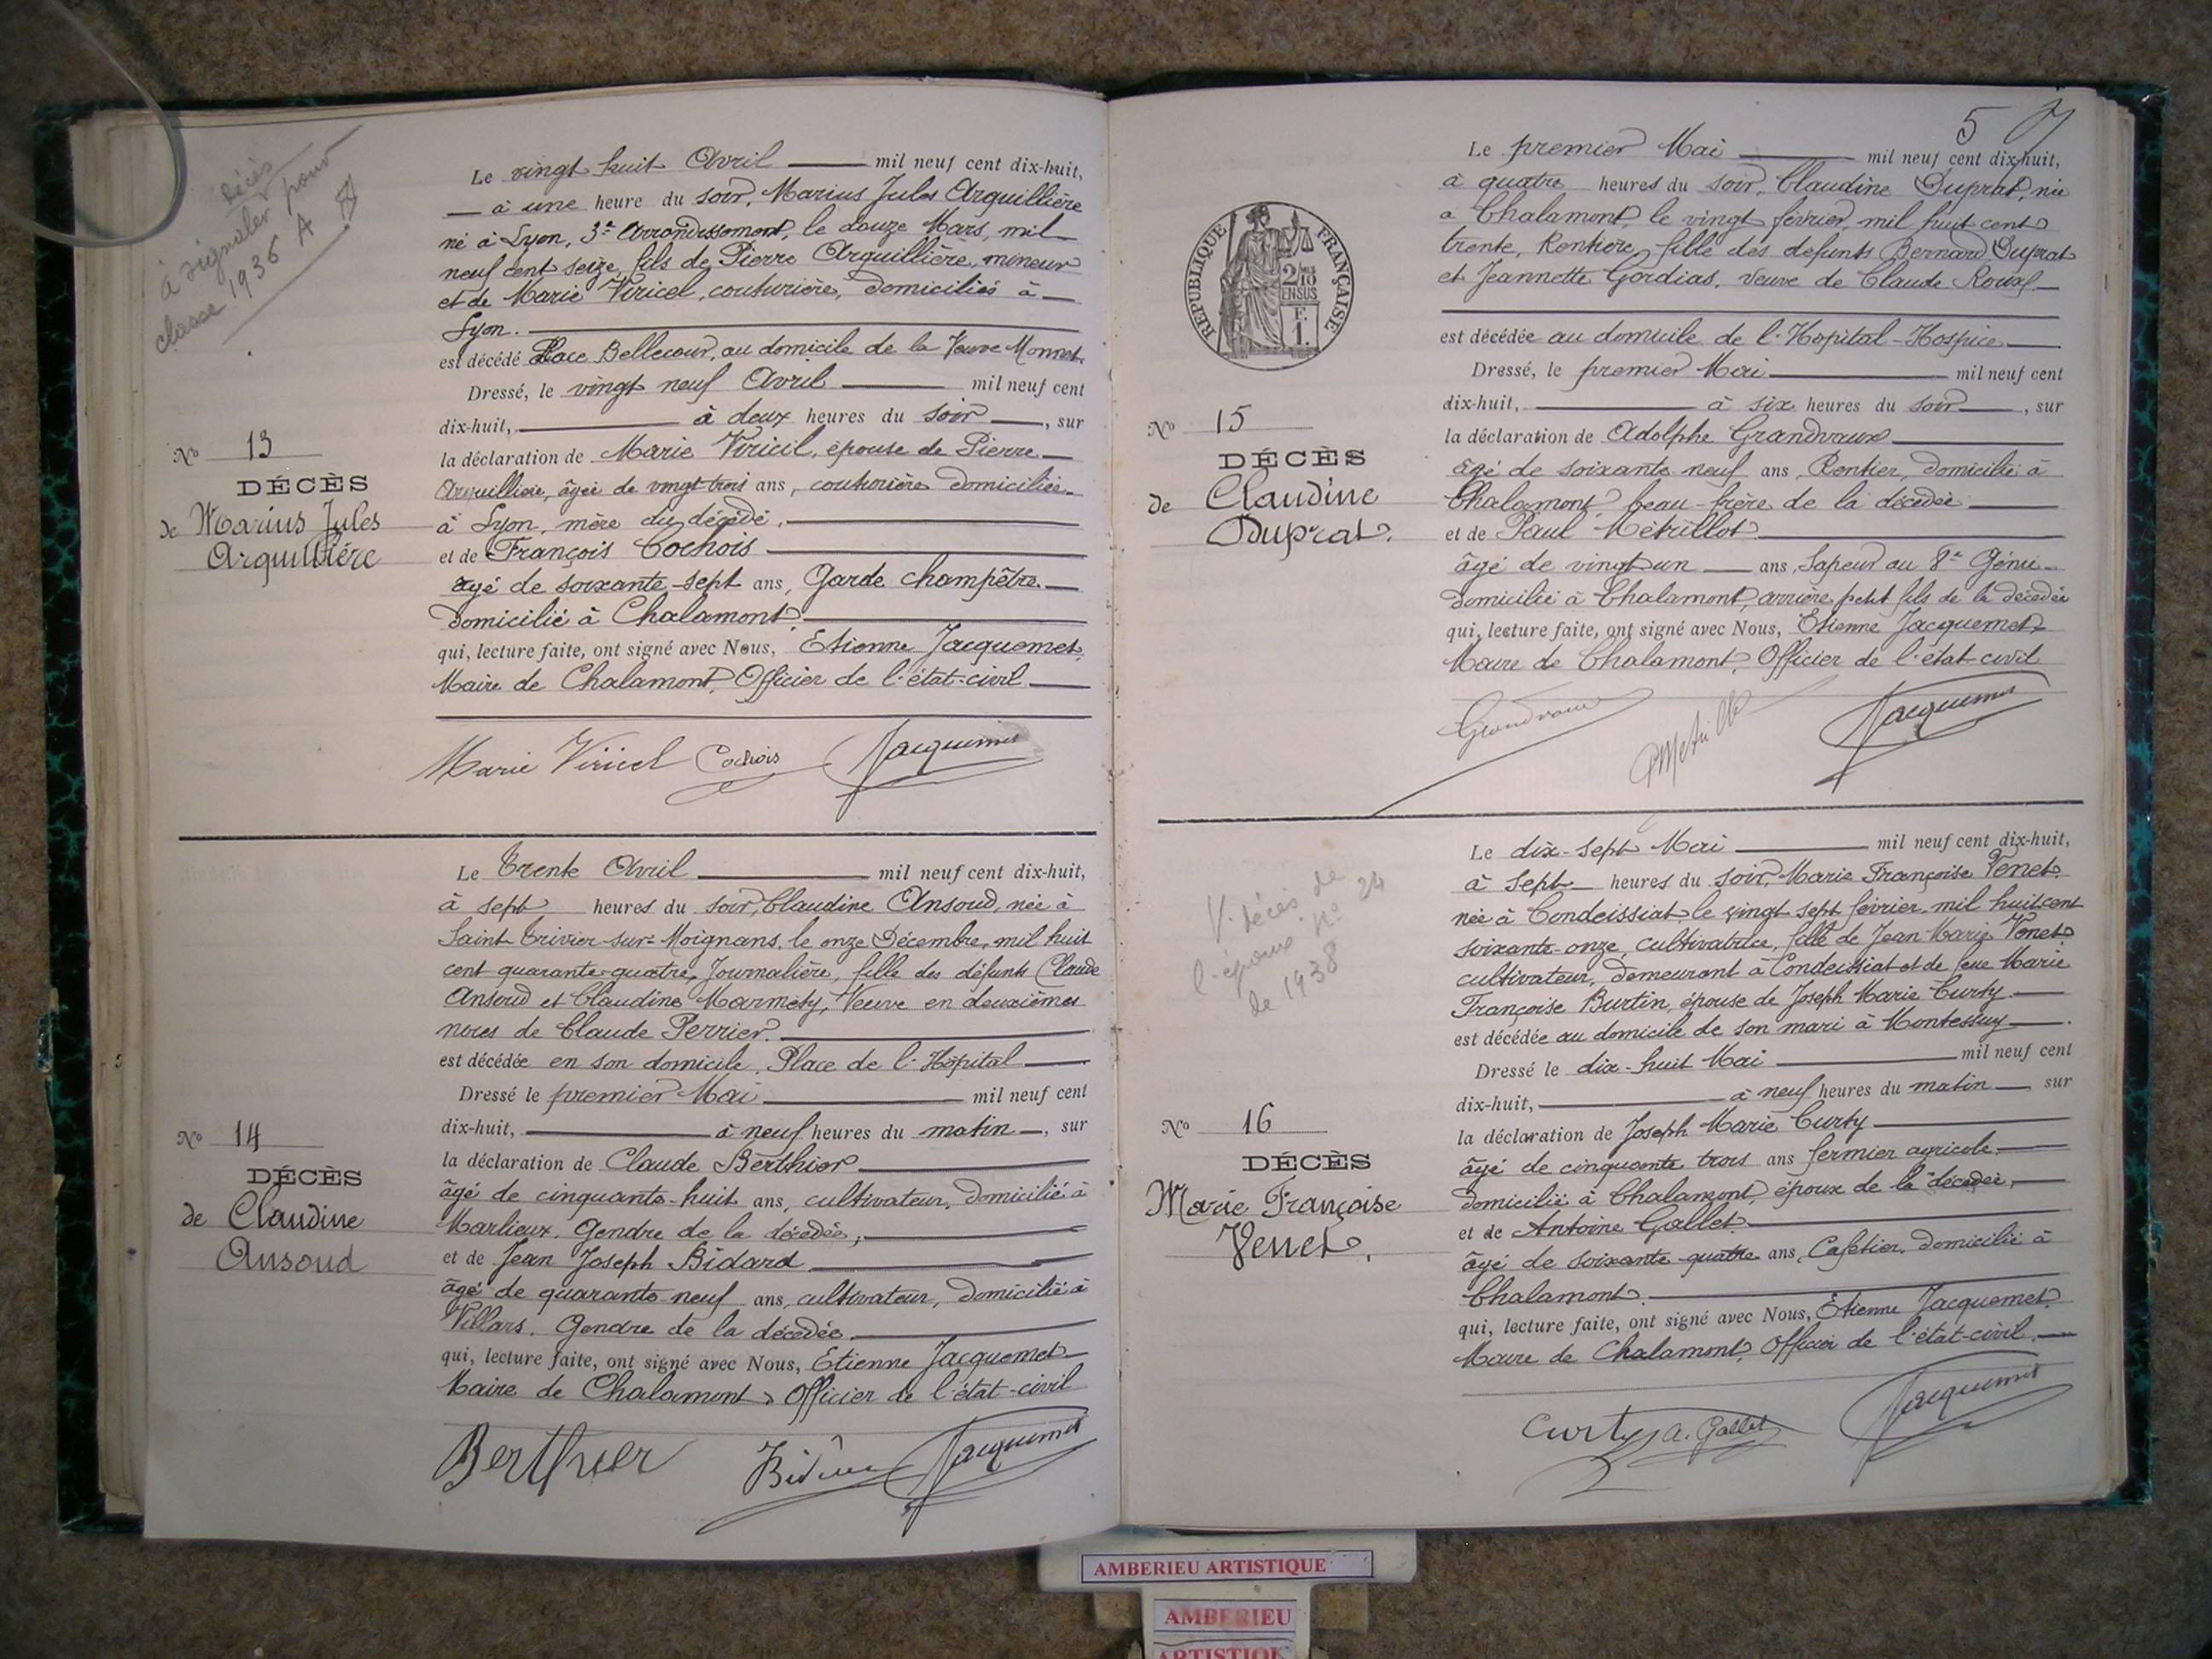 décès
à signaler pour
classe 1936 A
Le vingt huit Avril mil neuf cent dix-huit,
à une heure du soir, Marius Jules Arquillière
né à Lyon, 3e Arrondissement, le douze Mars, mil
neuf cent seize, fils de Pierre Arquillière, mineur
et de Marie Viricel, couturière, domiciliés à
Lyon.
est décédé Place Bellecour, au domicile de la Veuve Monnet.
Dressé, le vingt neuf Avril mil neuf cent
dix-huit, à deux heures du soir, sur
la déclaration de Marie Viricil, épouse de Pierre
Arquillière, âgée de vingt-trois ans, couturière domiciliée
à Lyon, mère du décédé,
et de François Cochois
âgé de soixante-sept ans, Garde champêtre
domicilié à Chalamont
qui, lecture faite, ont signé avec Nous, Etienne Jacquemet,
Maire de Chalamont, Officier de l'état-civil
No 13
DÉCÈS
de Marius Jules
Arquillière
Marie Viricel Cochois Jacquemet
Le Trente Avril mil neuf cent dix-huit,
à sept heures du soir, Claudine Ansoud, née à
Saint-Trivier-sur-Moignans, le onze Décembre, mil huit
cent quarante-quatre, Journalière, fille des défunts Claude
Ansoud et Claudine Marmety, Veuve en deuxièmes
noces de Claude Perrier.
est décédée en son domicile, Place de l'Hôpital
Dressé le premier Mai mil neuf cent
dix-huit, à neuf heures du matin, sur
la déclaration de Claude Berthier
âgé de cinquante-huit ans, cultivateur, domicilié à
Marlieux, Gendre de la décédée,
et de Jean Joseph Bidard
âgé de quarante-neuf ans, cultivateur, domicilié à
Villars. Gendre de la décédée.
qui, lecture faite, ont signé avec Nous, Etienne Jacquemet
Maire de Chalamont, Officier de l'état-civil
No 14
DÉCÈS
de Claudine
Ansoud
Berthier Jacquemet
5
Le premier Mai mil neuf cent dix-huit,
à quatre heures du soir, Claudine Duprat, née
à Chalamont, le vingt février, mil huit cent
trente, Rentière, fille des défunts Bernard Duprat
et Jeannette Gordias, Veuve de Claude Roux
est décédée au domicile de l'Hopital-Hospice
Dressé, le premier Mai mil neuf cent
dix-huit, à six heures du soir, sur
la déclaration de Adolphe Grandvaux
âgé de soixante-neuf ans, Rentier, domicilié à
Chalamont, beau-frère de la décédée
et de Paul Métrillot
âgé de vingt un ans, Sapeur au 8e Génie
domicilié à Chalamont, arrière petit fils de la décédée
qui, lecture faite, ont signé avec Nous, Etienne Jacquemet
Maire de Chalamont, Officier de l'état-civil
RÉPUBLIQUE FRANÇAISE
2/10
EN SUS
F.
1.
No 15
DÉCÈS
de Claudine
Duprat.
Grandvaux Jacquemet
Le dix-sept Mai mil neuf cent dix-huit,
à sept heures du soir, Marie Françoise Venet
née à Condeissiat, le vingt sept février, mil huit cent
soixante-onze, cultivatrice, fille de Jean Marie Venet
cultivateur, demeurant à Condeissiat et de feue Marie
Françoise Burtin, épouse de Joseph Marie Curty
est décédée au domicile de son mari à Montessuy
Dressé le dix-huit Mai mil neuf cent
dix-huit, à neuf heures du matin sur
la déclaration de Joseph Marie Curty
âgé de cinquante trois ans fermier agricole
domicilié à Chalamont, époux de la décédée,
et de Antoine Gallet
âgé de soixante-quatre ans, Cafetier, domicilié à
Chalamont.
qui, lecture faite, ont signé avec Nous, Etienne Jacquemet
Maire de Chalamont, Officier de l'état-civil.
V. décès de
l'époux no 24
de 1938
No 16
DÉCÈS
Marie Françoise
Venet.
Curty A. Gallet Jacquemet
AMBERIEU ARTISTIQUE
AMBERIEU
ARTISTIQUE